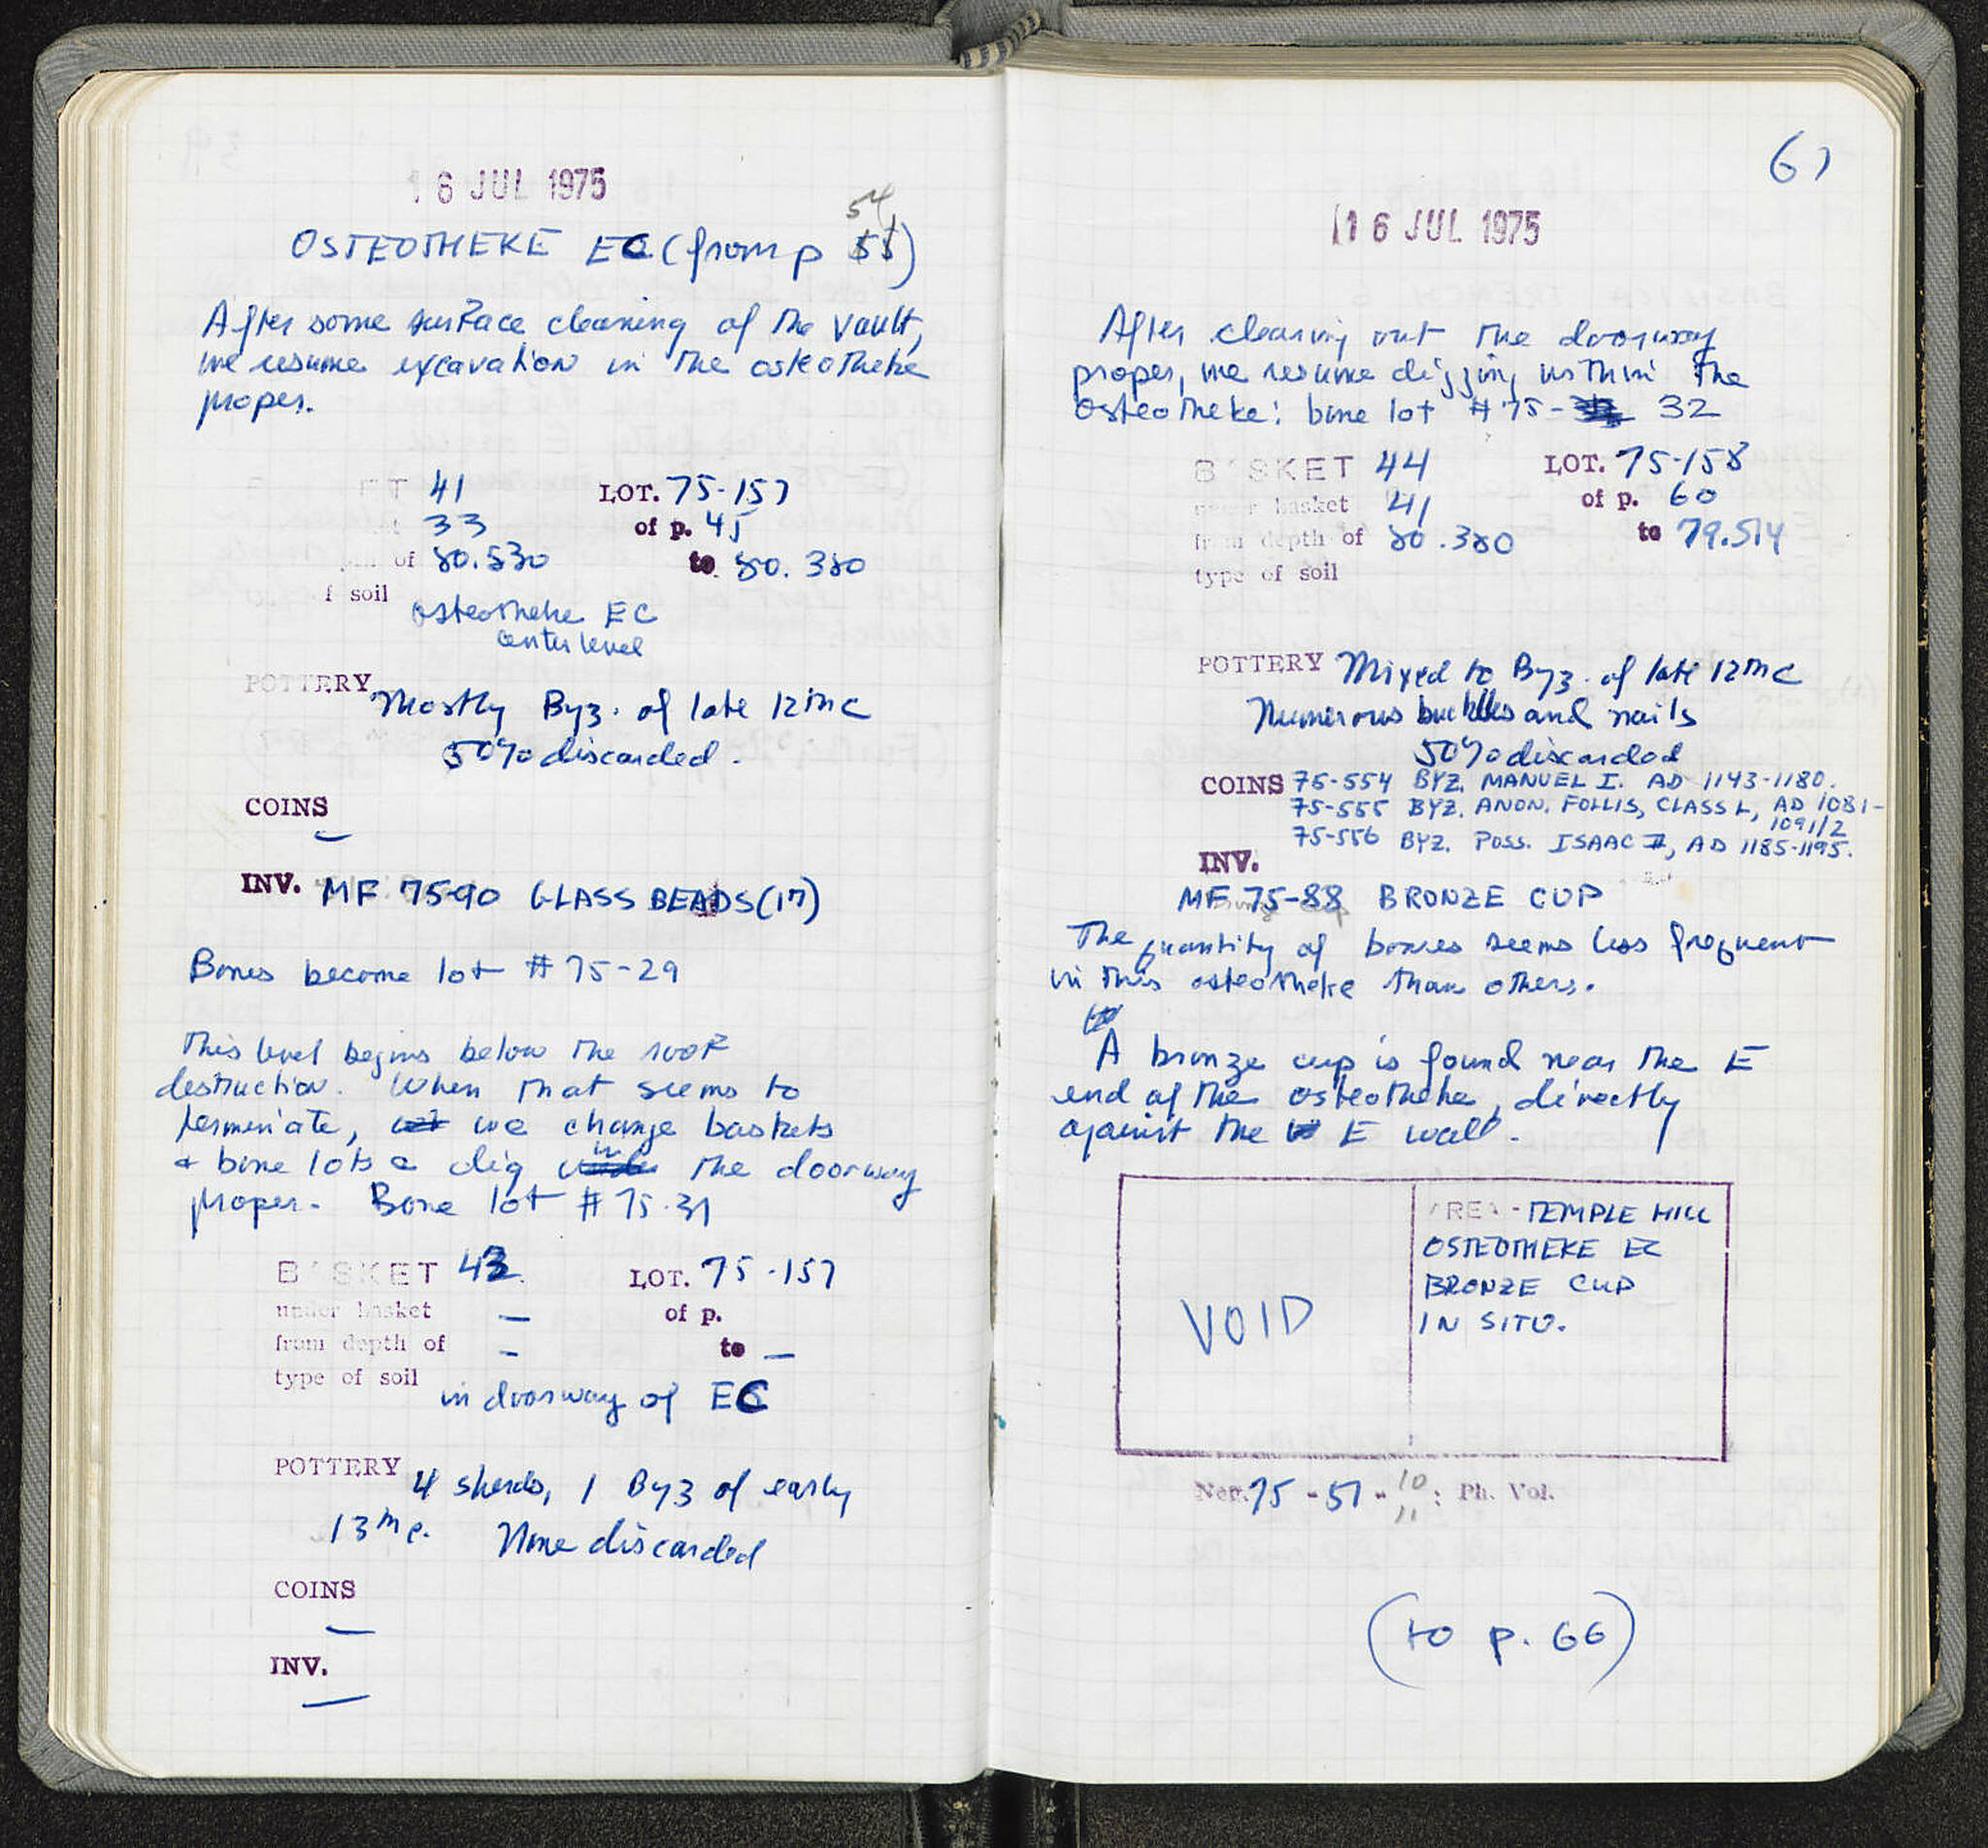 16 JUL 1975
54
OSTEOTHEKE EC (from p 55)
After some surface cleaning of the vault,
we resume excavation in the osteotheke
proper.
ET 41 LOT. 75-157
33 of p. 45
of 80.530 to 80.380
f soil osteotheke EC
center level
POTTERY Mostly Byz. of late 12th c
50% discarded.
COINS —
INV. MF 75-90 GLASS BEADS (17)
Bones become lot # 75-29
This level begins below the roof
destruction. When that seems to
terminate, we change baskets
+ bone lots & dig in the doorway
proper. Bone lot # 75-31
BASKET 43 LOT. 75-157
under basket — of p.
from depth of — to —
type of soil in doorway of EC
POTTERY 4 sherds, 1 Byz of early
13th c. None discarded
COINS
—
INV.
—
61
16 JUL 1975
After clearing out the doorway
proper, we resume digging within the
osteotheke: bone lot #75- 32
BASKET 44 LOT. 75-158
under basket 41 of p. 60
from depth of 80.380 to 79.514
type of soil
POTTERY Mixed to Byz. of late 12th c
Numerous buckles and nails
50% discarded
COINS 75-554 BYZ. MANUEL I. AD 1143-1180.
75-555 BYZ. ANON. FOLLIS, CLASS L, AD 1081-
1091/2
75-556 BYZ. POSS. ISAAC II, AD 1185-1195.
INV.
MF 75-88 BRONZE CUP
The quantity of bones seems less frequent
in this osteotheke than others.
A bronze cup is found near the E
end of the osteotheke, directly
against the E wall.
VOID
AREA - TEMPLE HILL
OSTEOTHEKE EC
BRONZE CUP
IN SITU.
Neg. 75-51-10 : Ph. Vol.
11
(to p. 66)